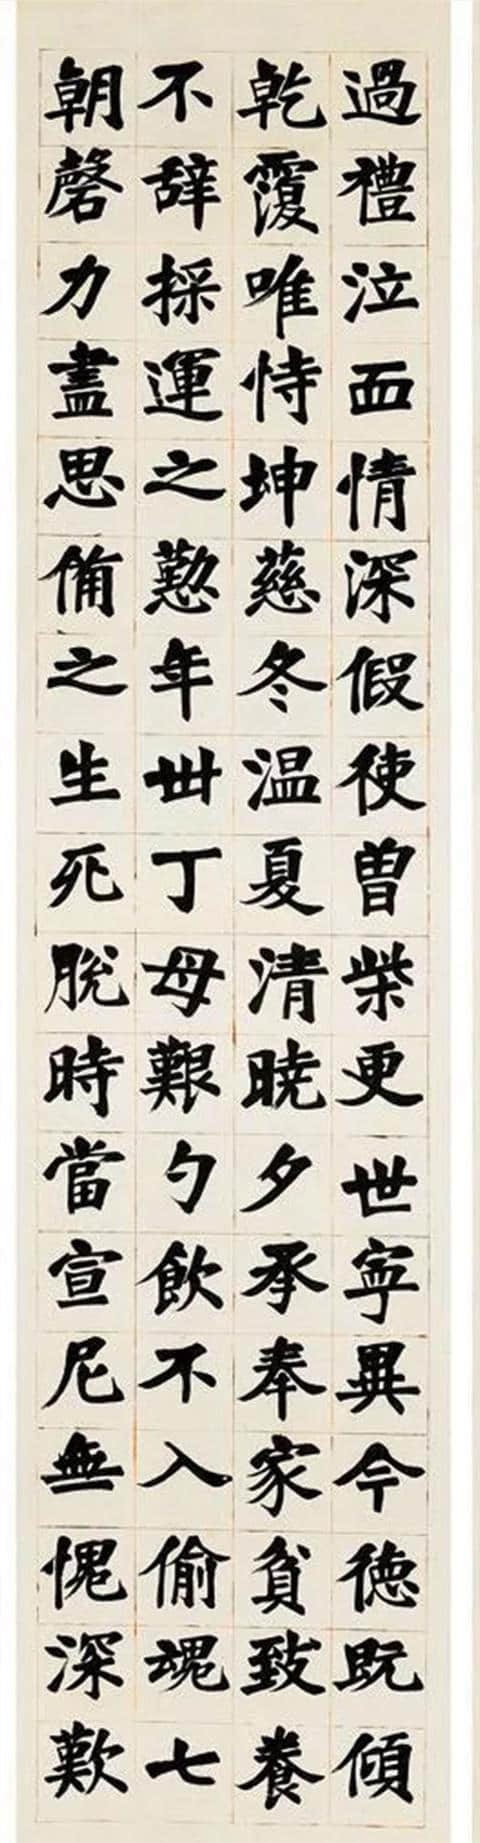 過禮泣血情深假使曾柴更世寧異今德既傾
乾覆唯恃坤慈冬温夏清曉夕承奉家貧致養
不辞採運之懃年丗丁母艱勺飲不入偷魂七
朝磬力盡思備之生死脫時當宣尼無愧深歎